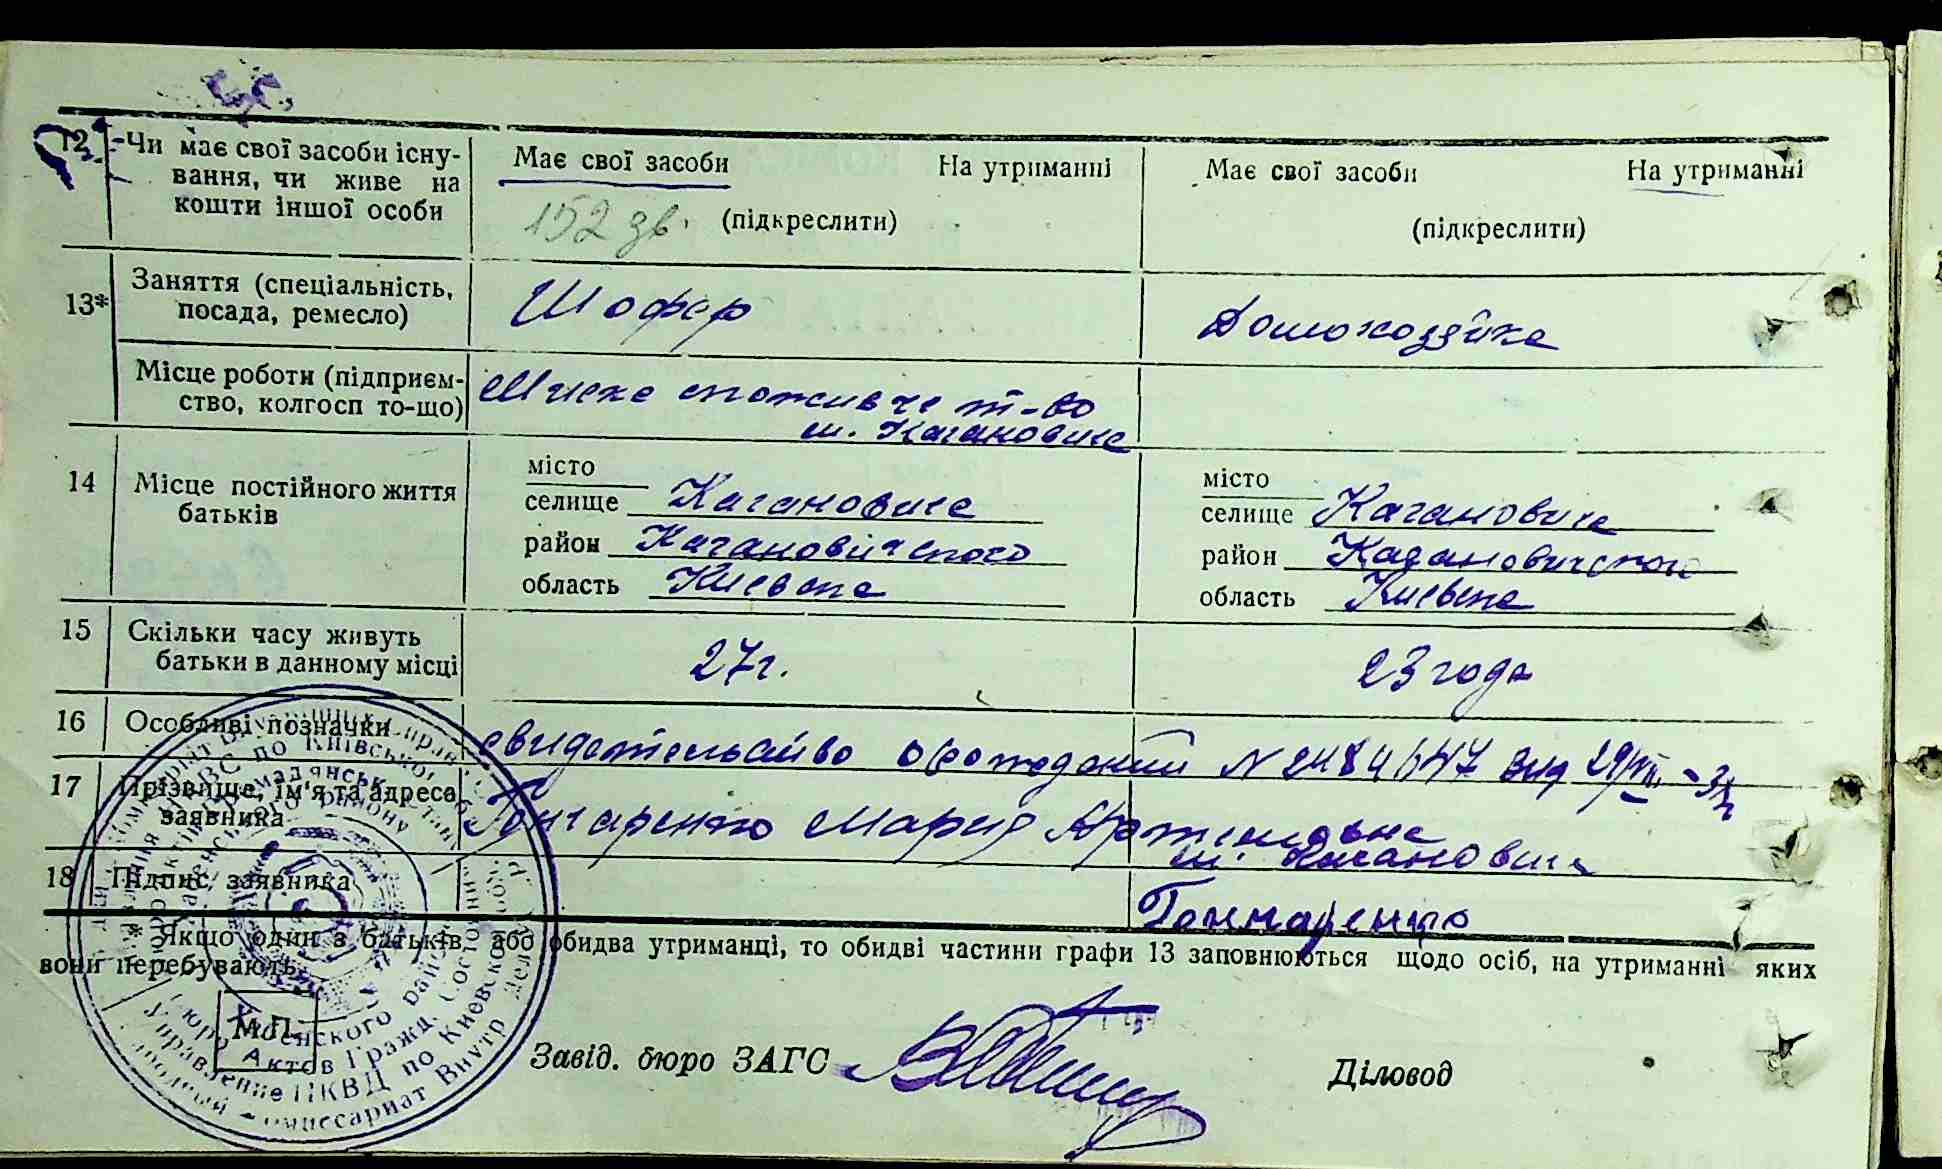 12 Чи має свої засоби існу-
вання, чи живе на
кошти іншої особи
Має свої засоби На утриманні
152 зв. (підкреслити)
Має свої засоби На утриманні
(підкреслити)
13* Заняття (спеціальність,
посада, ремесло)
Шофер
Домохозяйка
Місце роботи (підприєм-
ство, колгосп то-що)
споживче т-во
м. Кагановиче
14 Місце постійного життя
батьків
місто
селище Кагановиче
район Кагановичского
область Киевска
місто
селище Кагановиче
район Кагановичского
область Киевска
15 Скільки часу живуть
батьки в данному місці
27г.
23 года
16 Особливі позначки
свидетельство о рождении N
17 Прізвище, ім'я та адреса
заявника
Гончаренко Мария Артемовна
м. Кагановичи
18 Підпис заявника
Гончаренко
* Якщо один з батьків, або обидва утриманці, то обидві частини графи 13 заповнюються щодо осіб, на утриманні яких
вони перебувають.
М.П.
Завід. бюро ЗАГС
Діловод